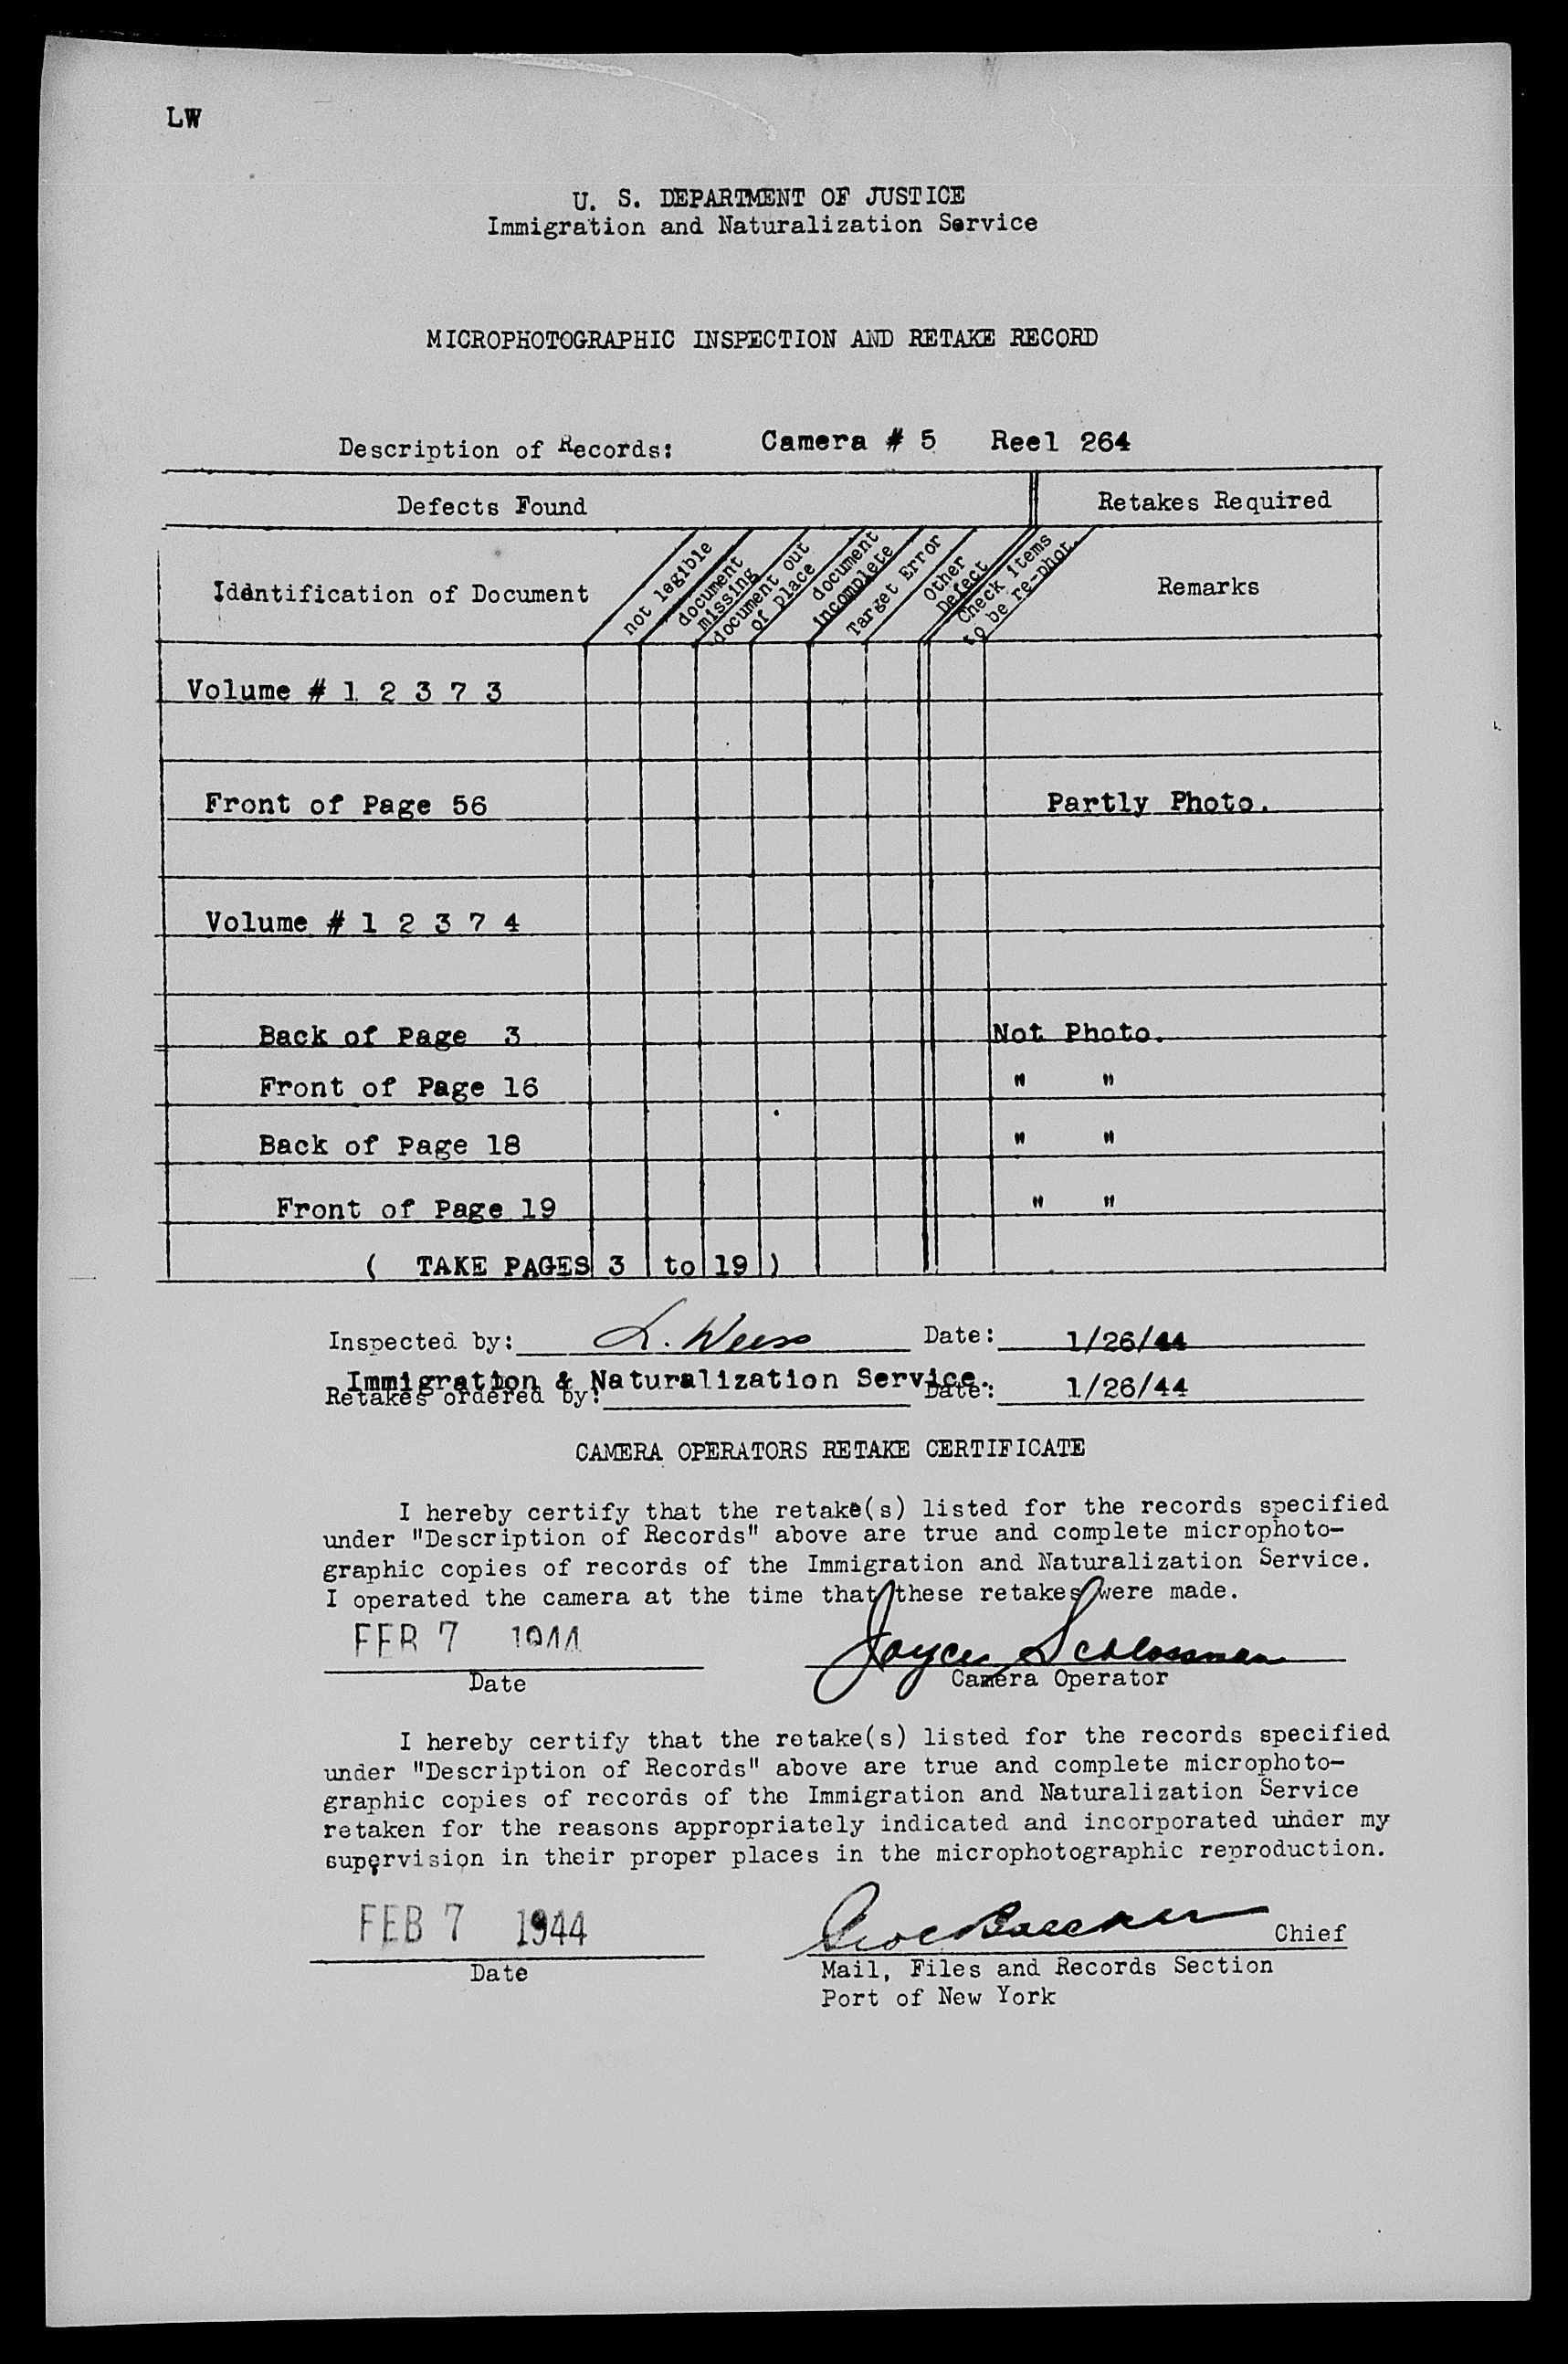 LW
U. S. DEPARTMENT OF JUSTICE
Immigration and Naturalization Service
MICROPHOTOGRAPHIC INSPECTION AND RETAKE RECORD
Description of Records: Camera # 5 Reel 264
Defects Found Retakes Required
Identification of Document
not legible
document
missing
document out
of place
document
incomplete
Target Error
Other
Defect
Check items
to be re-phot.
Remarks
Volume # 1 2 3 7 3
Front of Page 56 Partly Photo.
Volume # 1 2 3 7 4
Back of Page 3 Not Photo.
Front of Page 16 " "
Back of Page 18 " "
Front of Page 19 " "
( TAKE PAGES 3 to 19 )
Inspected by: L. Weiss Date: 1/26/44
Immigration & Naturalization Service.
Retakes ordered by: Date: 1/26/44
CAMERA OPERATORS RETAKE CERTIFICATE
I hereby certify that the retake(s) listed for the records specified
under "Description of Records" above are true and complete microphoto-
graphic copies of records of the Immigration and Naturalization Service.
I operated the camera at the time that these retakes were made.
FEB 7 1944 Joyce Schlossman
Date Camera Operator
I hereby certify that the retake(s) listed for the records specified
under "Description of Records" above are true and complete microphoto-
graphic copies of records of the Immigration and Naturalization Service
retaken for the reasons appropriately indicated and incorporated under my
supervision in their proper places in the microphotographic reproduction.
FEB 7 1944 Chief
Date Mail, Files and Records Section
Port of New York